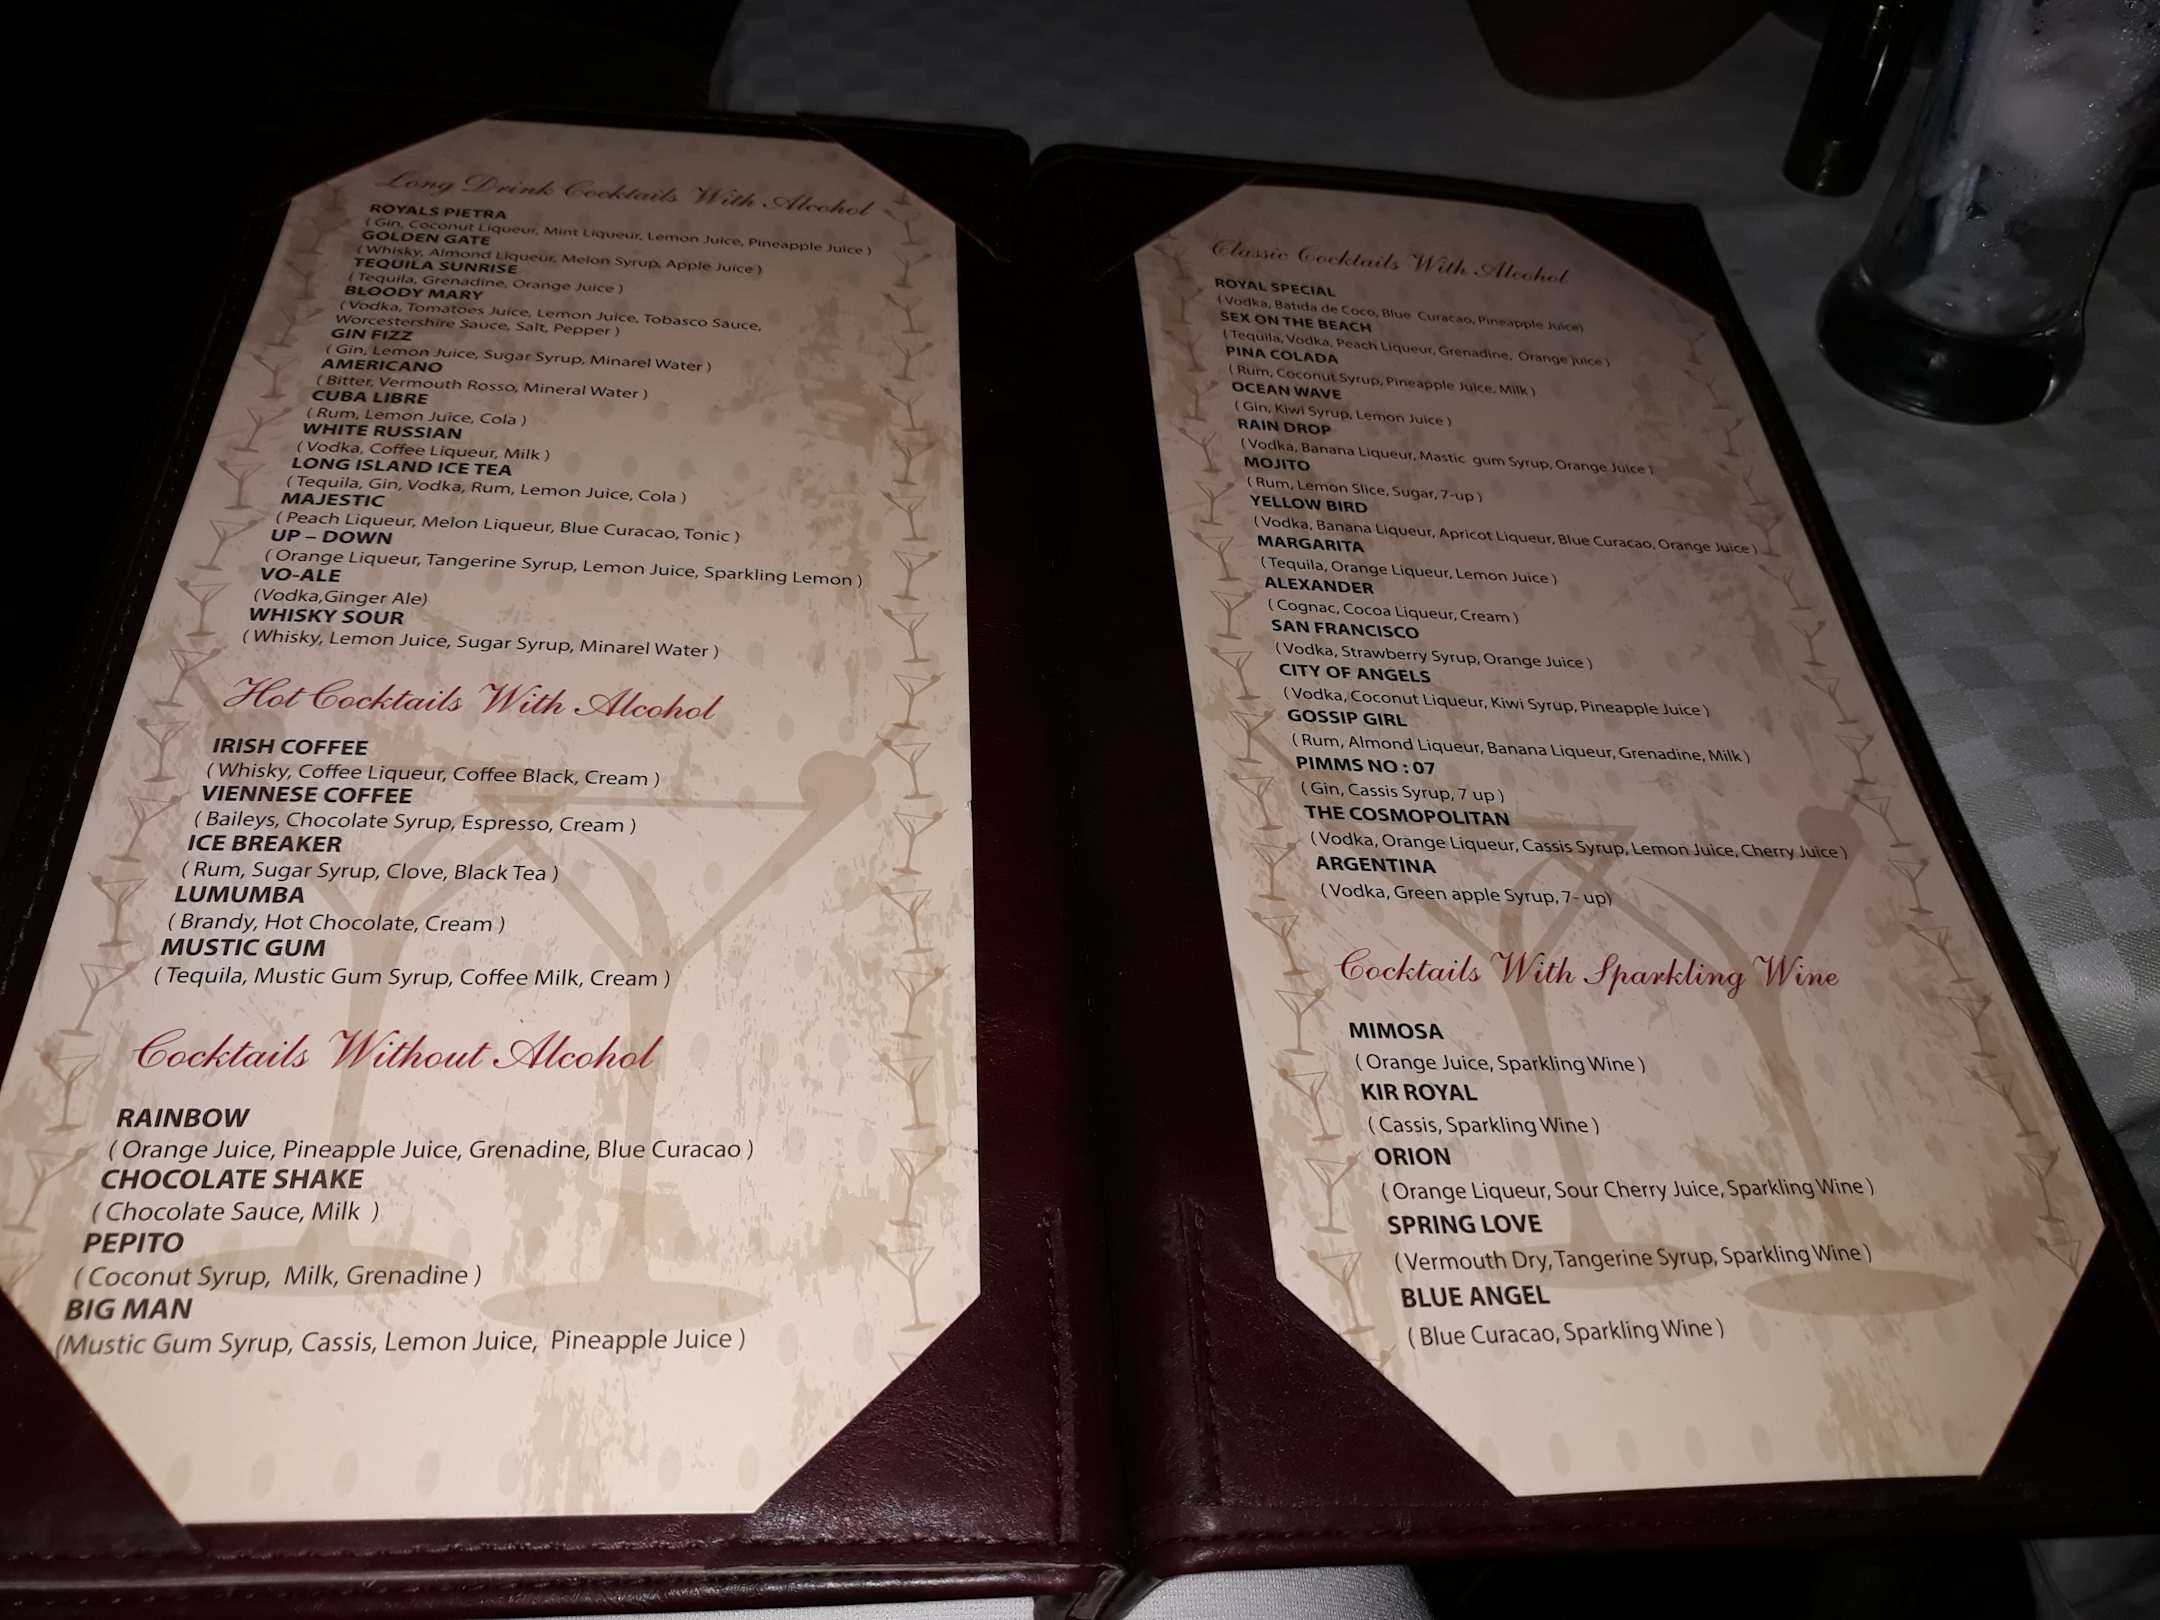 Long Drink Cocktails With Alcohol
ROYALS PIETRA
( Gin, Coconut Liqueur, Mint Liqueur, Lemon Juice, Pineapple Juice )
GOLDEN GATE
( Whisky, Almond Liqueur, Melon Syrup, Apple Juice )
TEQUILA SUNRISE
( Tequila, Grenadine, Orange Juice )
BLOODY MARY
( Vodka, Tomatoes Juice, Lemon Juice, Tobasco Sauce,
Worcestershire Sauce, Salt, Pepper )
GIN FIZZ
( Gin, Lemon Juice, Sugar Syrup, Minarel Water )
AMERICANO
( Bitter, Vermouth Rosso, Mineral Water )
CUBA LIBRE
( Rum, Lemon Juice, Cola )
WHITE RUSSIAN
( Vodka, Coffee Liqueur, Milk )
LONG ISLAND ICE TEA
( Tequila, Gin, Vodka, Rum, Lemon Juice, Cola )
MAJESTIC
( Peach Liqueur, Melon Liqueur, Blue Curacao, Tonic )
UP – DOWN
( Orange Liqueur, Tangerine Syrup, Lemon Juice, Sparkling Lemon )
VO-ALE
(Vodka,Ginger Ale)
WHISKY SOUR
( Whisky, Lemon Juice, Sugar Syrup, Minarel Water )
Hot Cocktails With Alcohol
IRISH COFFEE
( Whisky, Coffee Liqueur, Coffee Black, Cream )
VIENNESE COFFEE
( Baileys, Chocolate Syrup, Espresso, Cream )
ICE BREAKER
( Rum, Sugar Syrup, Clove, Black Tea )
LUMUMBA
( Brandy, Hot Chocolate, Cream )
MUSTIC GUM
( Tequila, Mustic Gum Syrup, Coffee Milk, Cream )
Cocktails Without Alcohol
RAINBOW
( Orange Juice, Pineapple Juice, Grenadine, Blue Curacao )
CHOCOLATE SHAKE
( Chocolate Sauce, Milk )
PEPITO
( Coconut Syrup, Milk, Grenadine )
BIG MAN
(Mustic Gum Syrup, Cassis, Lemon Juice, Pineapple Juice )
Classic Cocktails With Alcohol
ROYAL SPECIAL
( Vodka, Batida de Coco, Blue Curacao, Pineapple Juice)
SEX ON THE BEACH
( Tequila, Vodka, Peach Liqueur, Grenadine, Orange juice )
PINA COLADA
( Rum, Coconut Syrup, Pineapple Juice, Milk )
OCEAN WAVE
( Gin, Kiwi Syrup, Lemon Juice )
RAIN DROP
( Vodka, Banana Liqueur, Mastic gum Syrup, Orange Juice )
MOJITO
( Rum, Lemon Slice, Sugar, 7-up )
YELLOW BIRD
( Vodka, Banana Liqueur, Apricot Liqueur, Blue Curacao, Orange Juice )
MARGARITA
( Tequila, Orange Liqueur, Lemon Juice )
ALEXANDER
( Cognac, Cocoa Liqueur, Cream )
SAN FRANCISCO
( Vodka, Strawberry Syrup, Orange Juice )
CITY OF ANGELS
( Vodka, Coconut Liqueur, Kiwi Syrup, Pineapple Juice )
GOSSIP GIRL
( Rum, Almond Liqueur, Banana Liqueur, Grenadine, Milk )
PIMMS NO : 07
( Gin, Cassis Syrup, 7 up )
THE COSMOPOLITAN
( Vodka, Orange Liqueur, Cassis Syrup, Lemon Juice, Cherry Juice )
ARGENTINA
( Vodka, Green apple Syrup, 7- up)
Cocktails With Sparkling Wine
MIMOSA
( Orange Juice, Sparkling Wine )
KIR ROYAL
( Cassis, Sparkling Wine )
ORION
( Orange Liqueur, Sour Cherry Juice, Sparkling Wine )
SPRING LOVE
( Vermouth Dry, Tangerine Syrup, Sparkling Wine )
BLUE ANGEL
( Blue Curacao, Sparkling Wine )